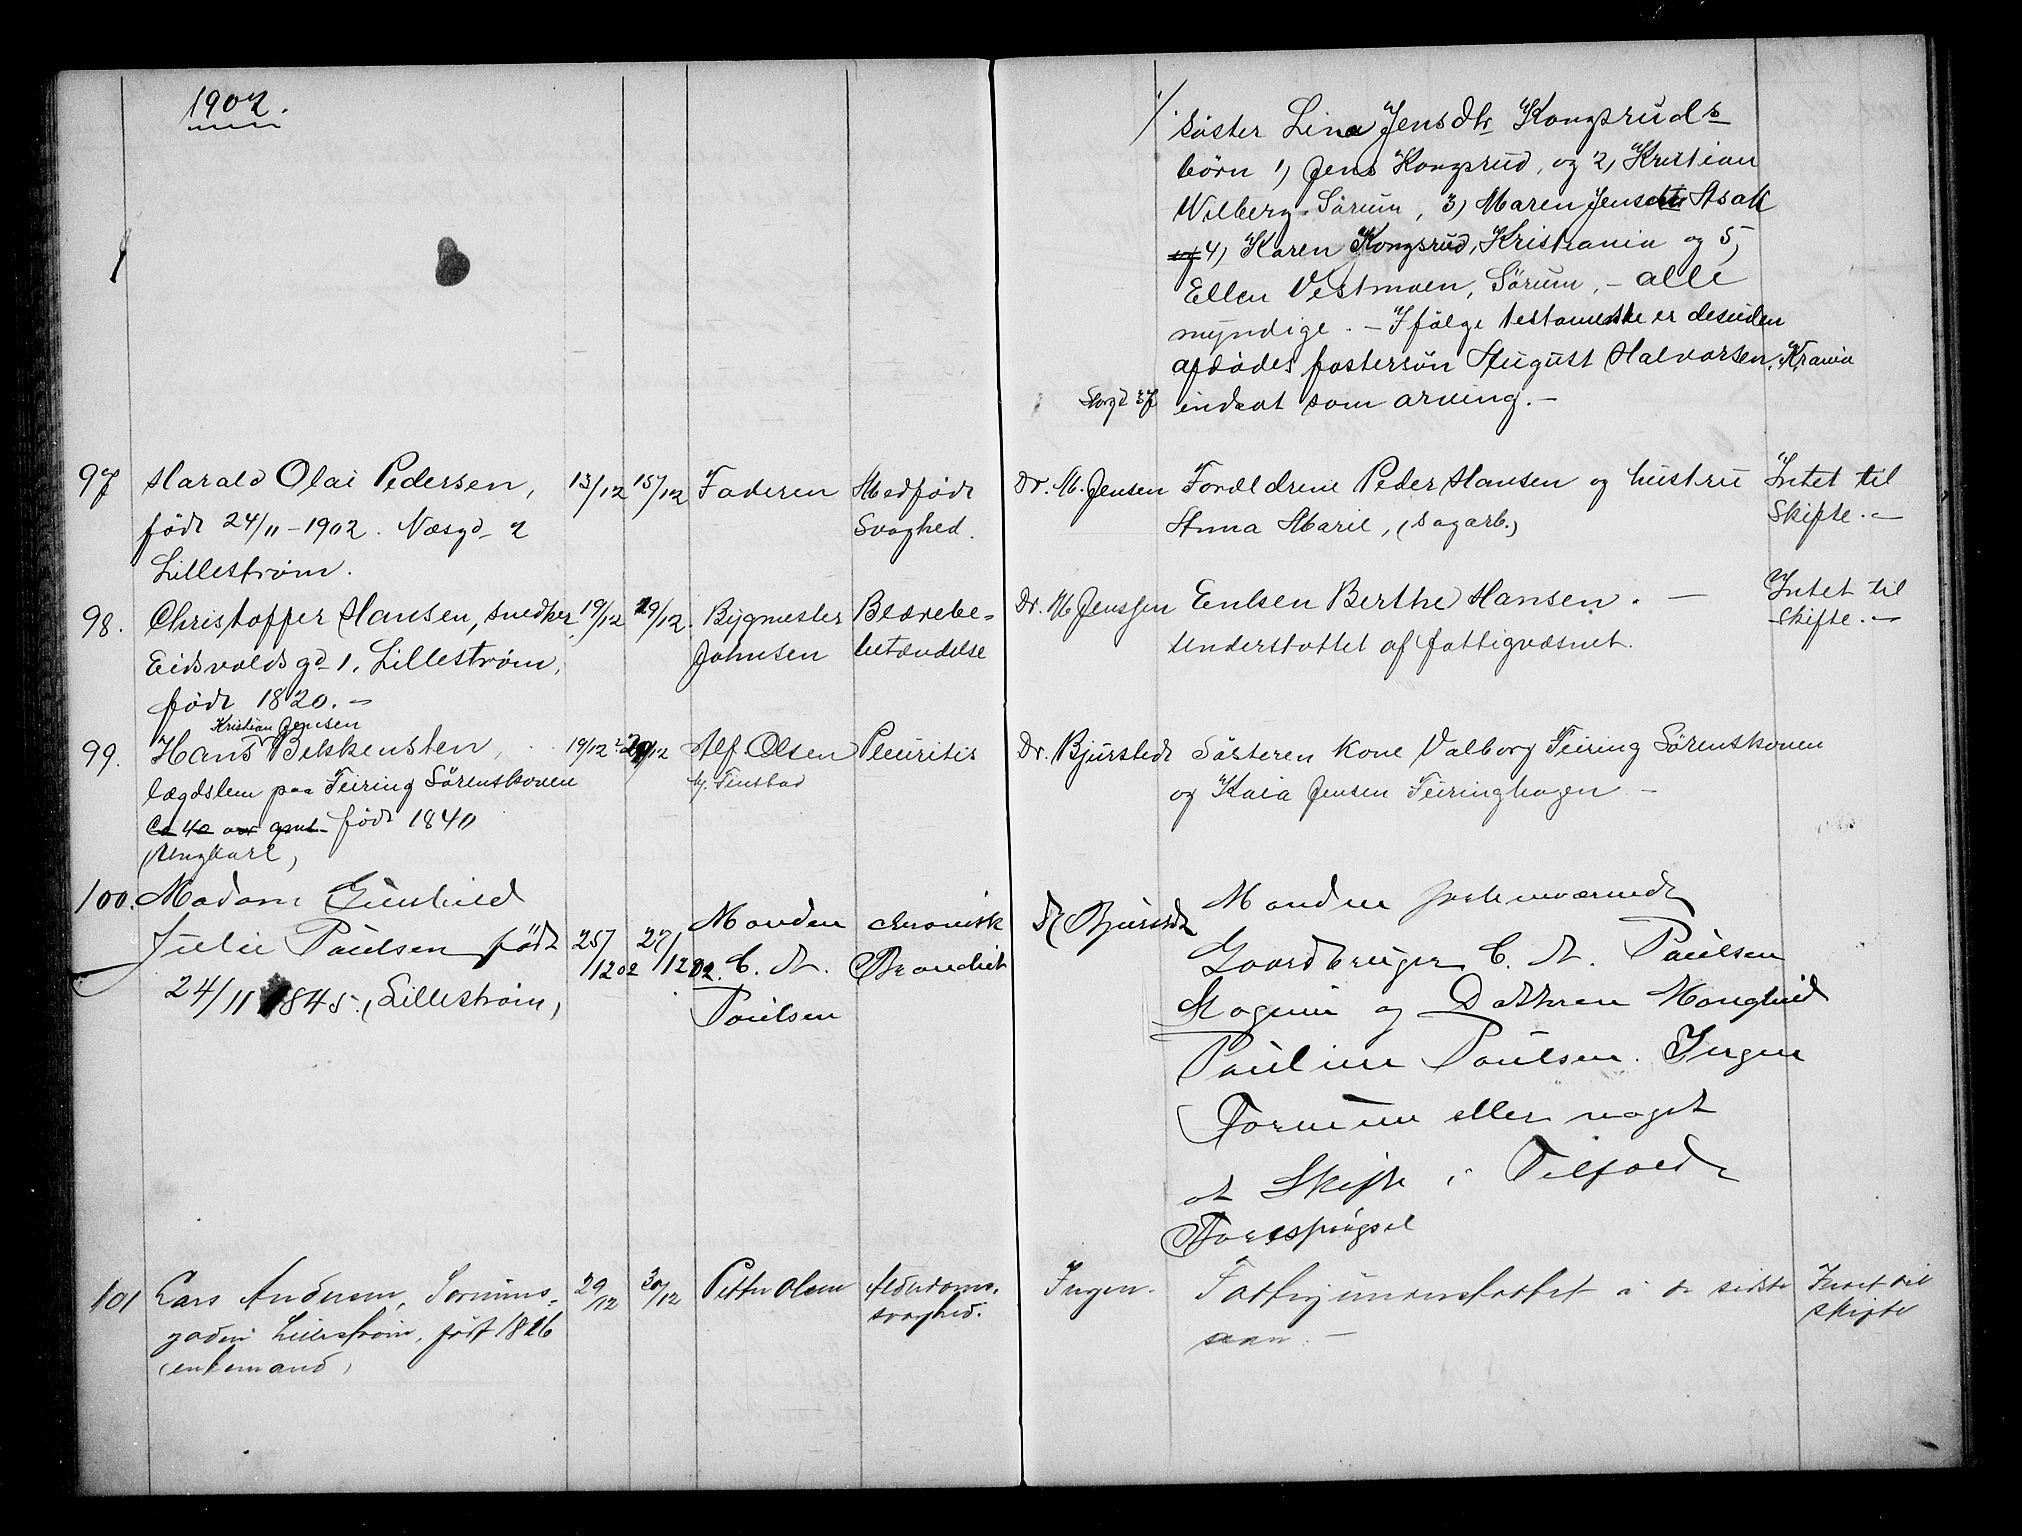 1902.
söster Lina Jensdtr Kongsruds
börn 1) Jens Kongsrud, og 2) Kristian
Wilberg Sörum, 3) Maren Jensdtr Asak
og 4) Karen Kongsrud, Kristiania og 5)
Ellen Vestmoen, Sörum, - alle
myndige. - Ifölge testamente er desuden
afdödes fostersön August Halvorsen, Krania
indsat som arving. -
97 Harald Olai Pedersen, 13/12 15/12 Faderen Medfødt Dr. M. Jensen Forældrene Peder Hansen og hustru Intet til
født 24/11-1902. Næsgd 2 Svaghed. Anna Marie, (sagarb.) Skifte. -
Lillestrøm.
98. Christoffer Hansen, snedker 19/12 29/12. Bygmester Blærebe= Dr. M Jenssen Enken Berthe Hansen. - Intet til
Eidsvoldsgd 1. Lillestrøm, Johnsen betændelse Understøttet af fattigvæsnet. Skifte. -
født 1820. -
Kristian Jensen
99. Hans Bekkensten, 19/12 Alf. Olsen Pleuritis Dr. Bjurstedt Søsteren kone Valborg Feiring Sørenskoven
lægdslem paa Feiring Sørenskoven Tenstad og Kaia Jensen Feiringhagen -
Ca 40 aar gml. født 1840
(Ungkarl)
100. Madam Gunhild Manden chronisk Dr Bjurstedt Manden forhenværende
Julie Paulsen født 25/12 02 27/12 02. C. A. Bronchit Gaardbruger C. A. Paulsen
24/11 1845. (Lillestrøm) Paulsen og Datteren Manghild
Pauline Paulsen. Ingen
Formue eller noget
at Skifte i Tilfælde
Forespörgsel
101 Lars Andersen, Sørums= 29/12 30/12 Petter Olsen Alderdoms= Ingen. Fattigunderstøttet i de sidste Intet til
gaden Lillestrøm, født 1816 svaghed. aar. - skifte
(enkemand)